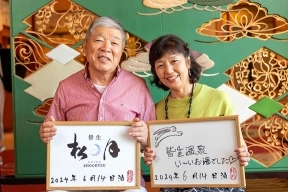 皆生
松月
SHOGETSU
2024年 6月14日 泊
皆生温泉
い〜いお湯でした
2024年 6月14日 泊